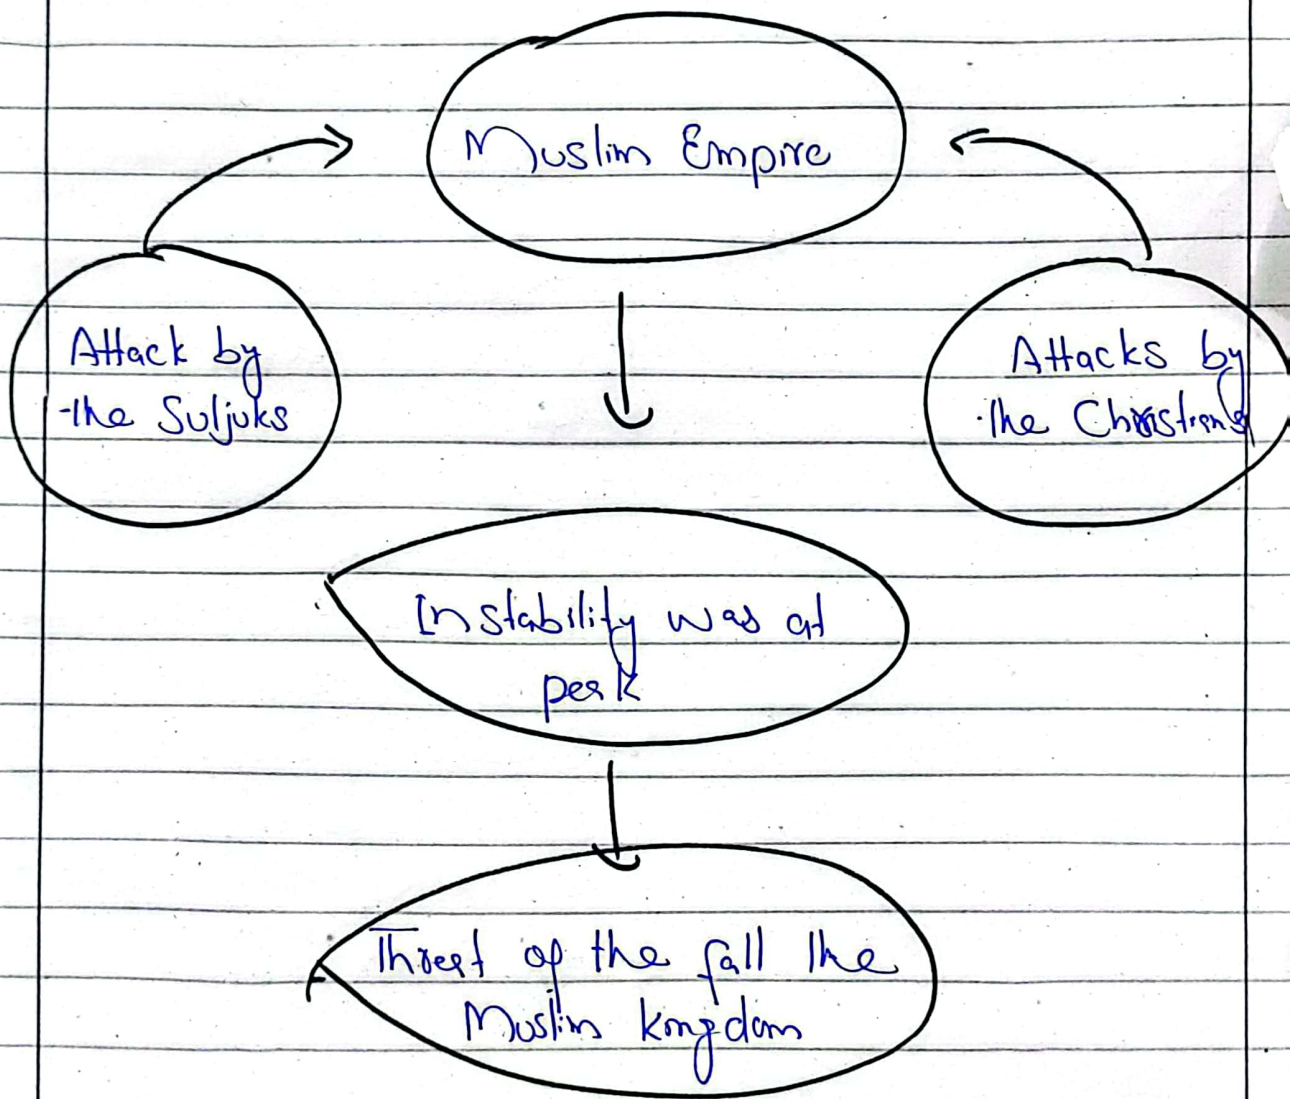 Muslim Empire
Attack by
the Suljuks
Attacks by
the Christians
Instability was at
peak
Threat of the fall the
Muslim kingdom